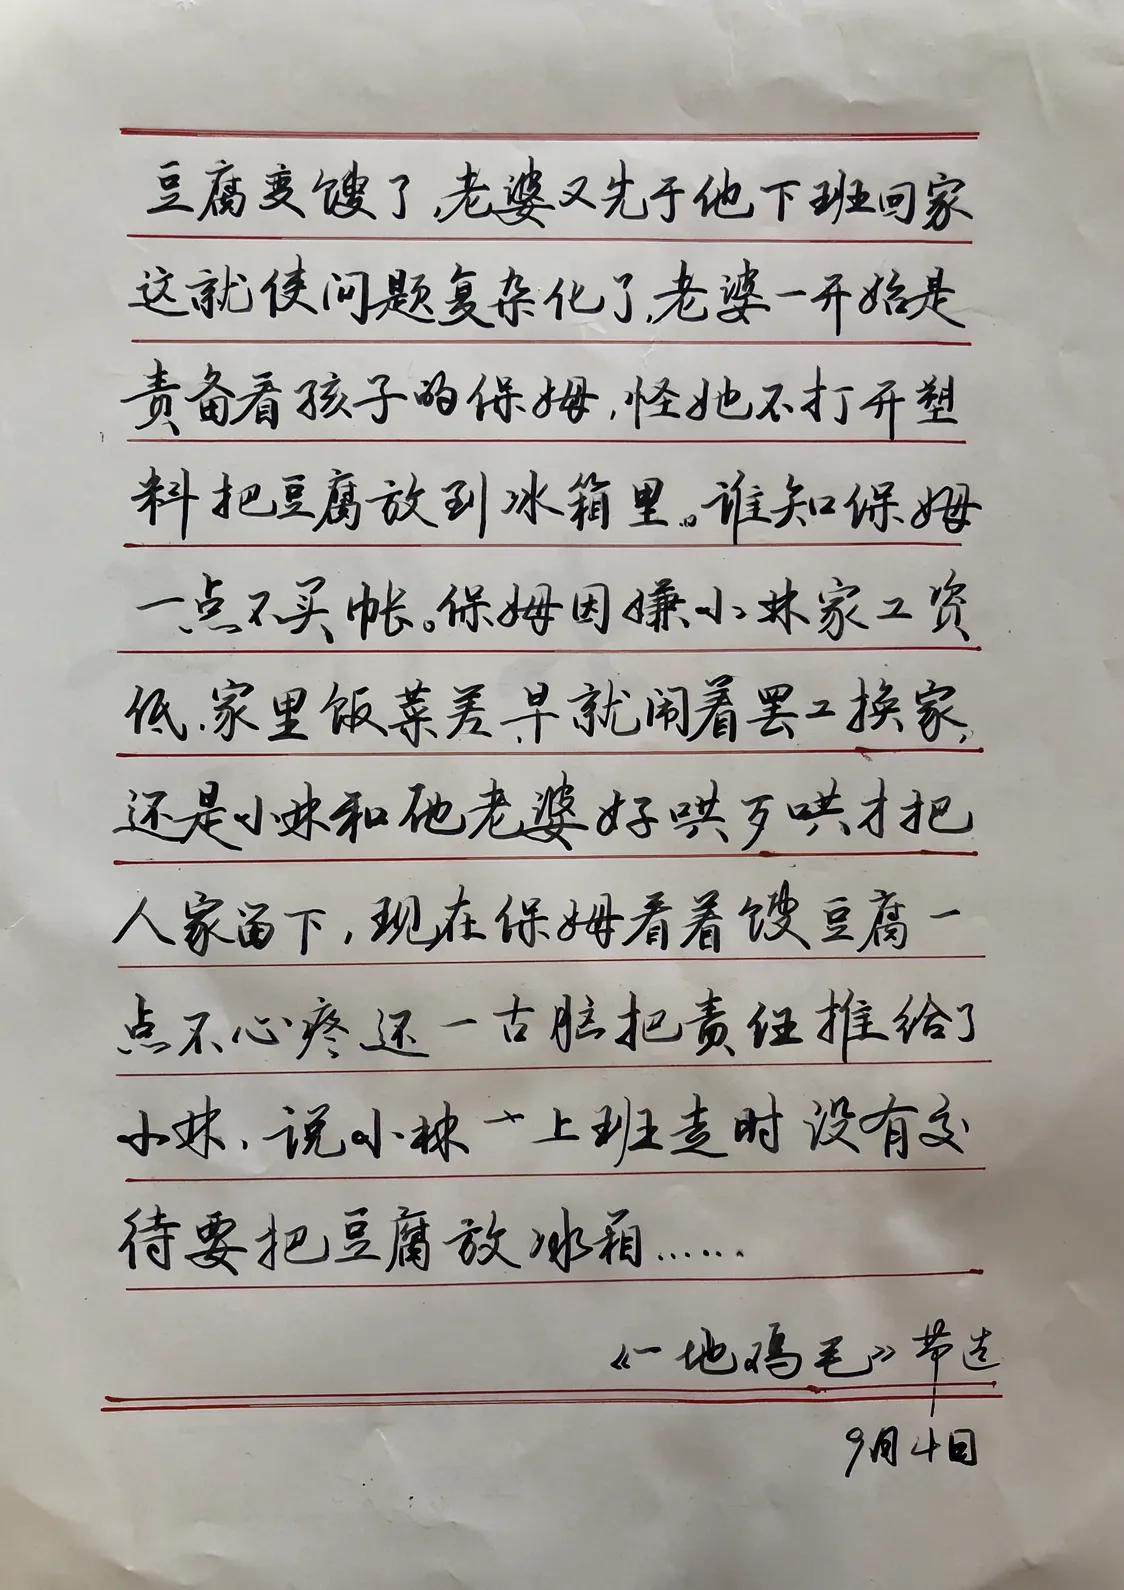 豆腐变馊了,老婆又先于他下班回家
这就使问题复杂化了,老婆一开始是
责备看孩子的保姆,怪她不打开塑
料把豆腐放到冰箱里。谁知保姆
一点不买帐。保姆因嫌小林家工资
低,家里饭菜差,早就闹着罢工换家,
还是小林和他老婆好哄歹哄才把
人家留下,现在保姆看着馊豆腐一
点不心疼还一古脑把责任推给了
小林,说小林一上班走时没有交
待要把豆腐放冰箱……
《一地鸡毛》节选
9月4日